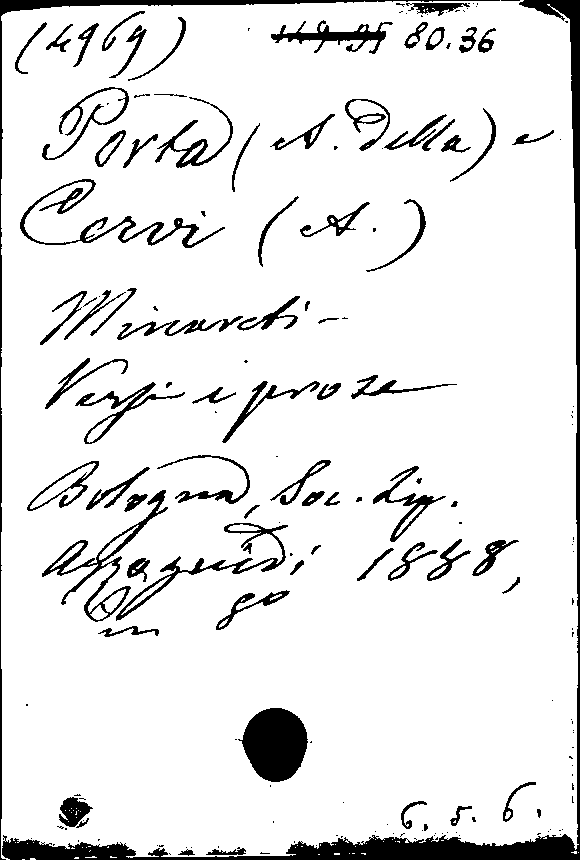 (4969) 149.95 80.36
Porta (A. Della) e
Cervi (A.)
Minareti -
Versi e prose
Bologna, Soc. Tip.
Azzoguidi 1888,
in 8o
6. 5. 6.